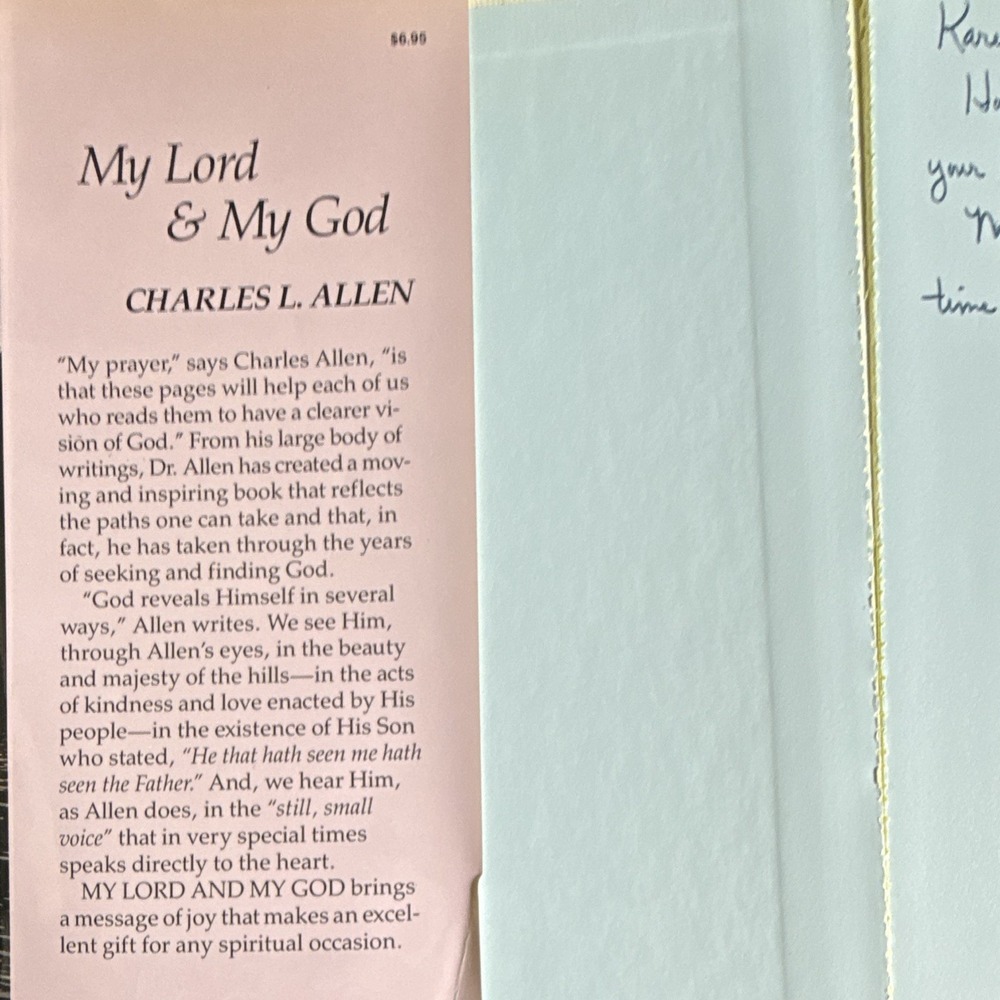 $6.95
My Lord
& My God
CHARLES L. ALLEN
“My prayer,” says Charles Allen, “is
that these pages will help each of us
who reads them to have a clearer vi-
sion of God.” From his large body of
writings, Dr. Allen has created a mov-
ing and inspiring book that reflects
the paths one can take and that, in
fact, he has taken through the years
of seeking and finding God.
“God reveals Himself in several
ways,” Allen writes. We see Him,
through Allen’s eyes, in the beauty
and majesty of the hills—in the acts
of kindness and love enacted by His
people—in the existence of His Son
who stated, “He that hath seen me hath
seen the Father.” And, we hear Him,
as Allen does, in the “still, small
voice” that in very special times
speaks directly to the heart.
MY LORD AND MY GOD brings
a message of joy that makes an excel-
lent gift for any spiritual occasion.
your
time